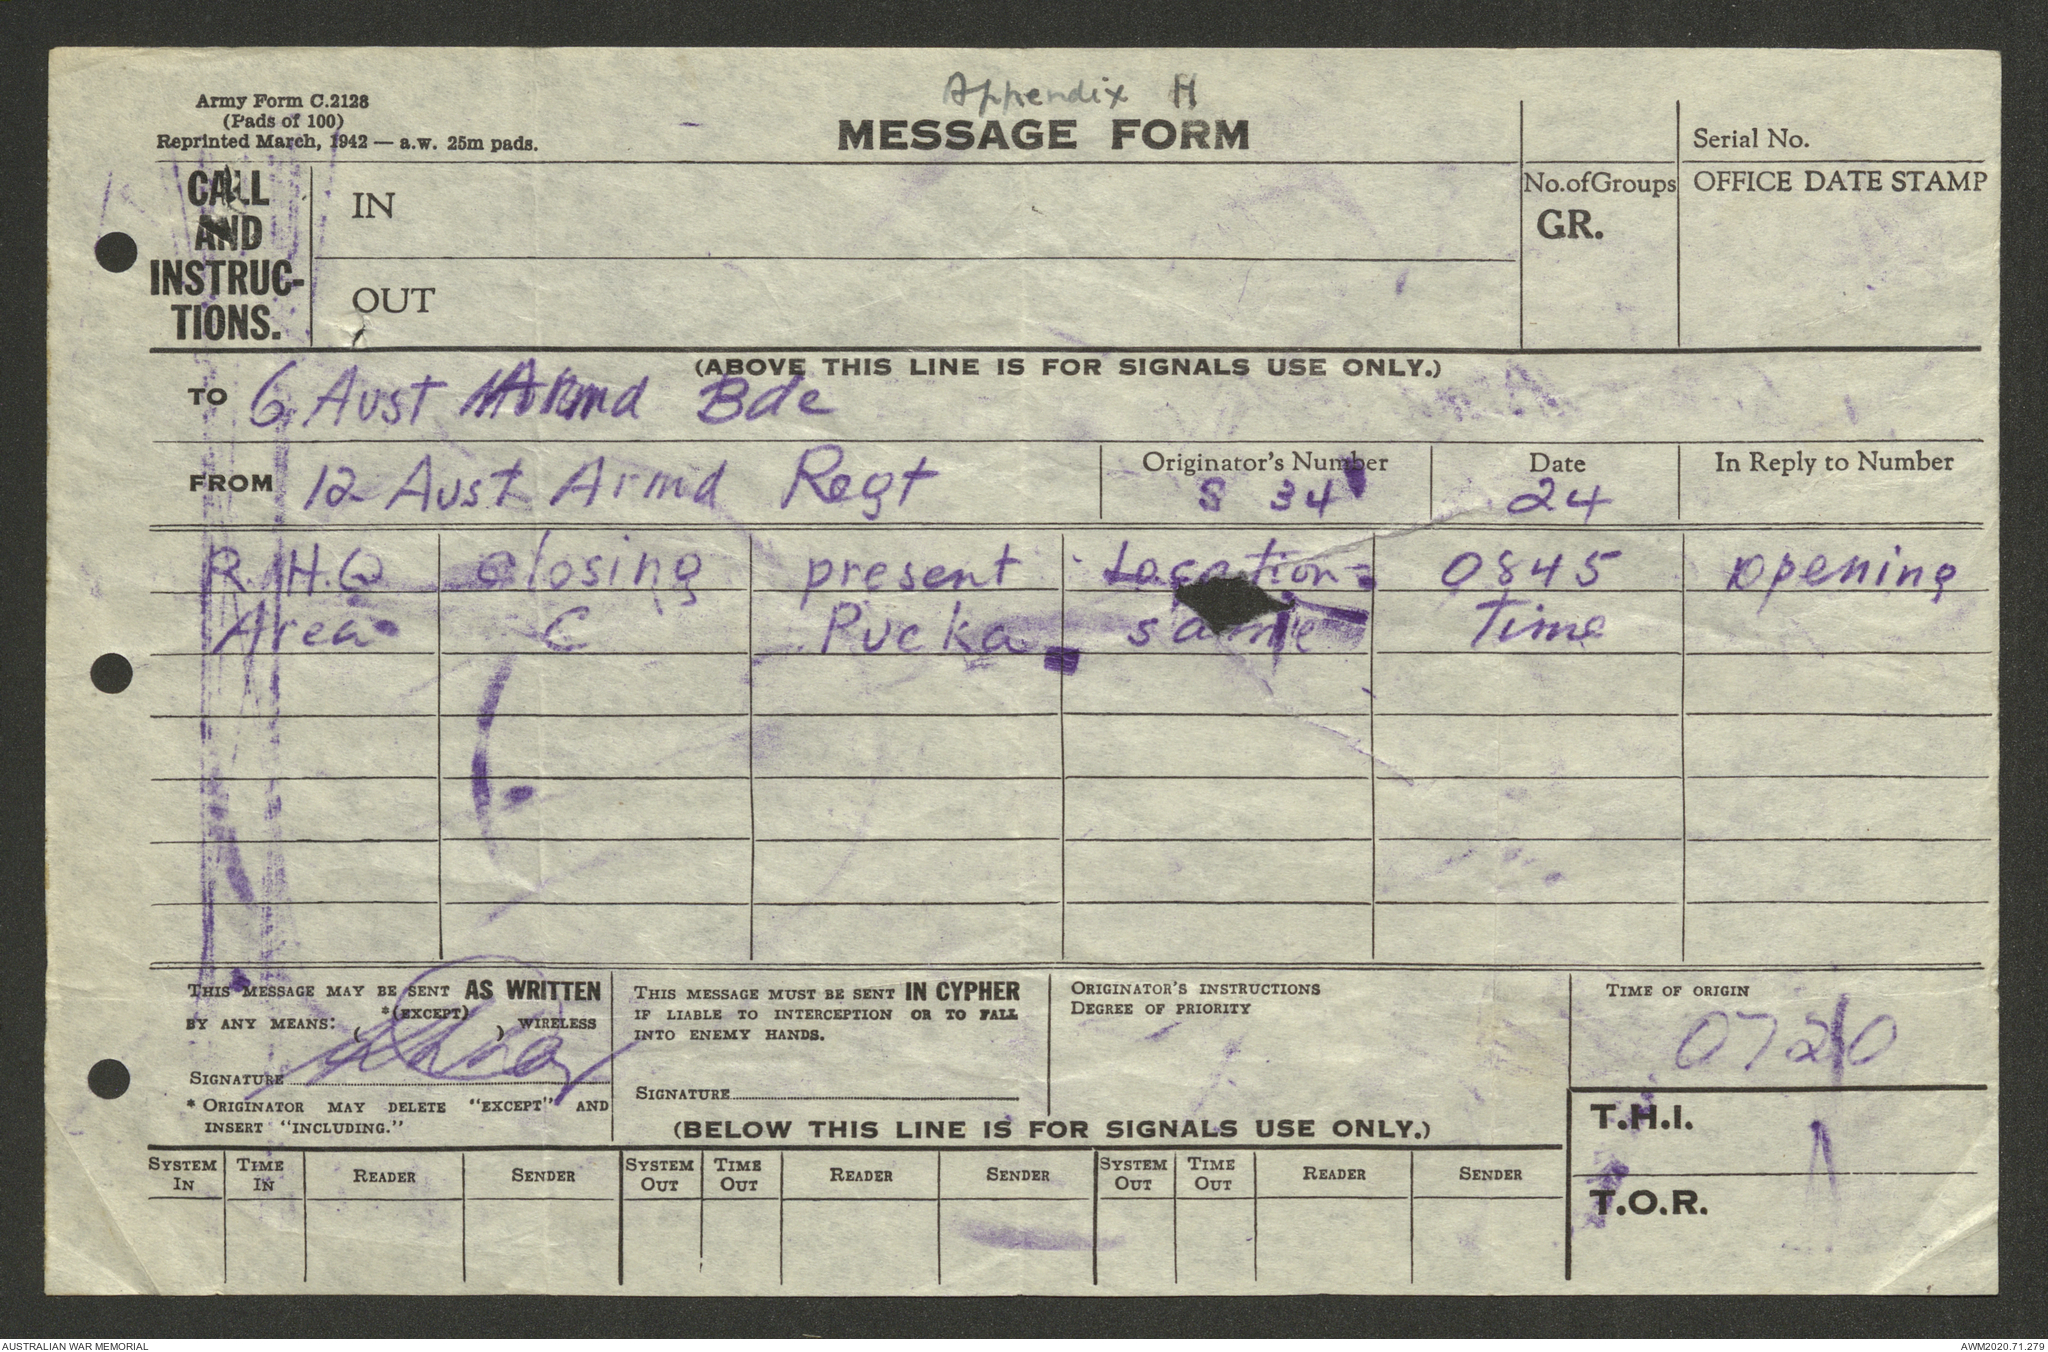 Appendix H
Army Form C.2128
(Pads of 100)
Reprinted March, 1942 — a.w. 25m pads.
MESSAGE FORM
Serial No.
CALL
AND
INSTRUC-
TIONS.
IN
OUT
No. of Groups
GR.
OFFICE DATE STAMP
(ABOVE THIS LINE IS FOR SIGNALS USE ONLY.)
TO 6 Aust Armd Bde
FROM 12 Aust Armd Regt
Originator's Number
S 34
Date
24
In Reply to Number
R.H.Q closing present Location 0845 opening
Area C Pucka same Time
THIS MESSAGE MAY BE SENT AS WRITTEN
BY ANY MEANS: ( *(EXCEPT) ) WIRELESS
SIGNATURE
* ORIGINATOR MAY DELETE "EXCEPT" AND
INSERT "INCLUDING."
THIS MESSAGE MUST BE SENT IN CYPHER
IF LIABLE TO INTERCEPTION OR TO FALL
INTO ENEMY HANDS.
SIGNATURE
ORIGINATOR'S INSTRUCTIONS
DEGREE OF PRIORITY
TIME OF ORIGIN
0720
(BELOW THIS LINE IS FOR SIGNALS USE ONLY.)
T.H.I.
T.O.R.
SYSTEM IN TIME IN READER SENDER SYSTEM OUT TIME OUT READER SENDER SYSTEM OUT TIME OUT READER SENDER
AUSTRALIAN WAR MEMORIAL
AWM2020.71.279